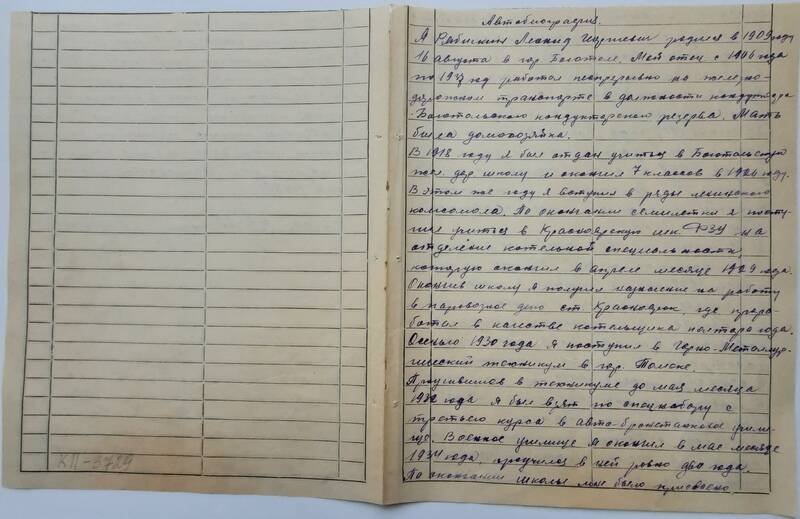 КП-3729
Автобиография.
Я Рябишин Леонид Георгиевич родился в 1909 году
16 августа в гор. Боготоле. Мой отец с 1906 года
по 1937 год работал непрерывно на желез но-
дорожном транспорте в должности кондуктора
Боготольского кондукторского резерва. Мать
была домохозяйка.
В 1918 году я был отдан учиться в Боготольскую
жел. дор школу и окончил 7 классов в 1926 году.
В этом же году я вступил в ряды ленинского
комсомола. По окончании семилетки я посту-
пил учиться в Красноярскую ФЗУ на
отделение котельной специальности,
которую окончил в апреле месяце 1929 года.
Окончив школу я получил назначение на работу
в паровозное депо ст. Красноярск, где прора-
ботал в качестве котельщика полтора года.
Осенью 1930 года я поступил в Черно-Металлур-
гический техникум в гор. Томске.
Проучившись в техникуме до мая месяца
1932 года я был взят по спецнабору с
третьего курса в авто-бронетанковое учили-
ще. Военное училище я окончил в мае месяце
1934 года, проучился в ней ровно два года.
По окончании школы мне было присвоено